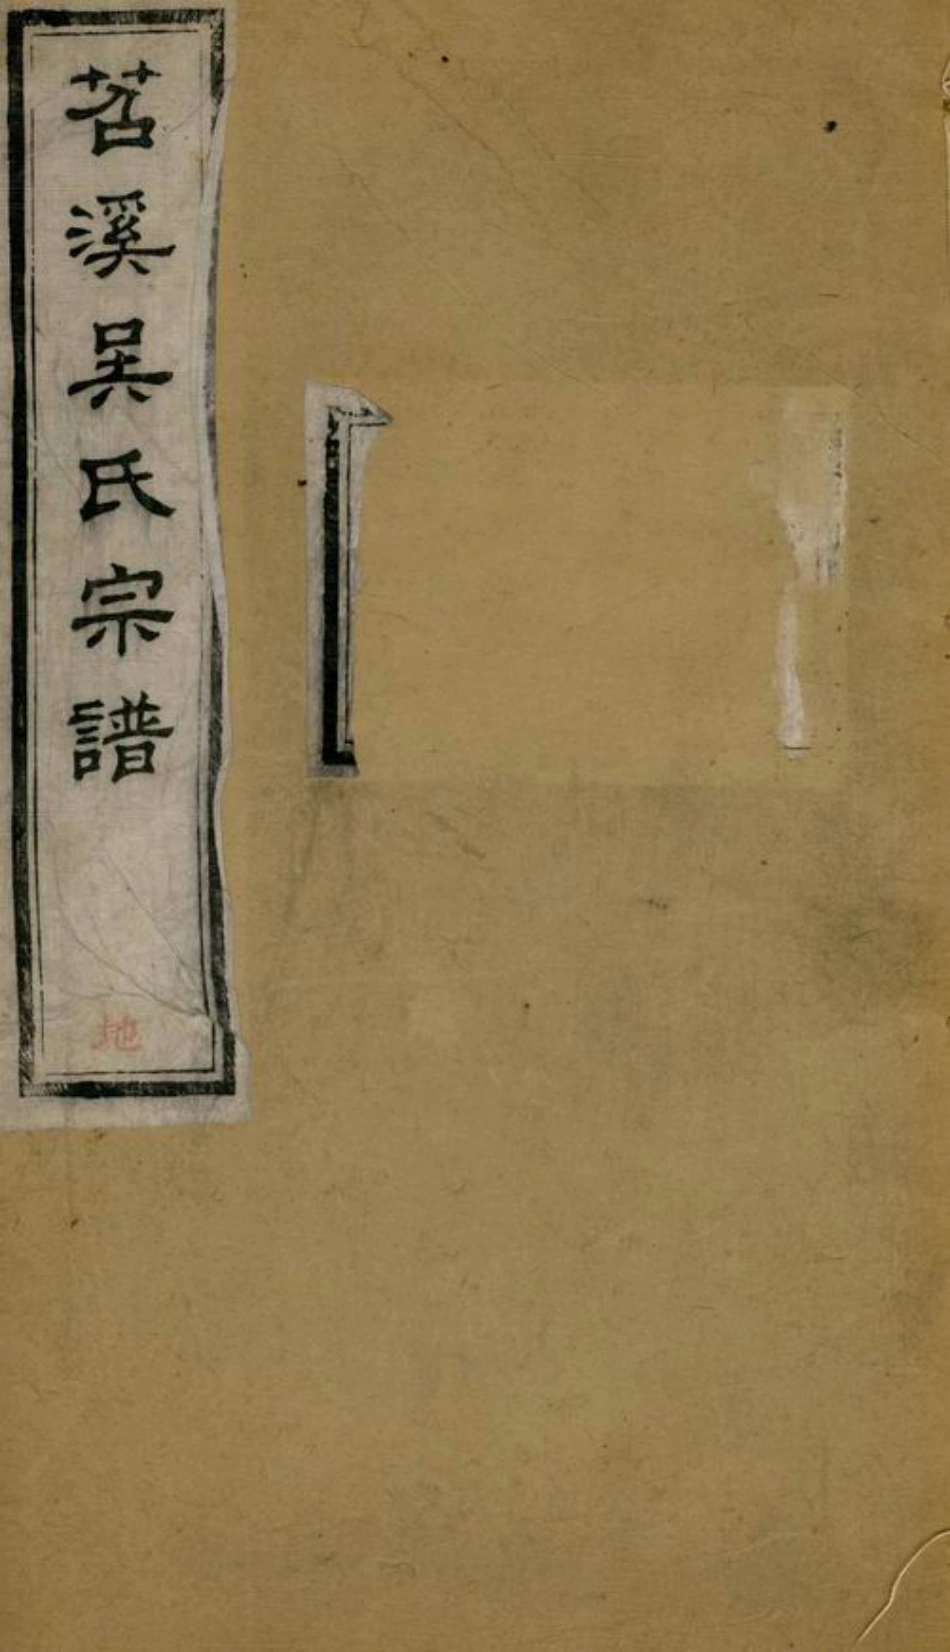 苕溪吴氏宗譜
地